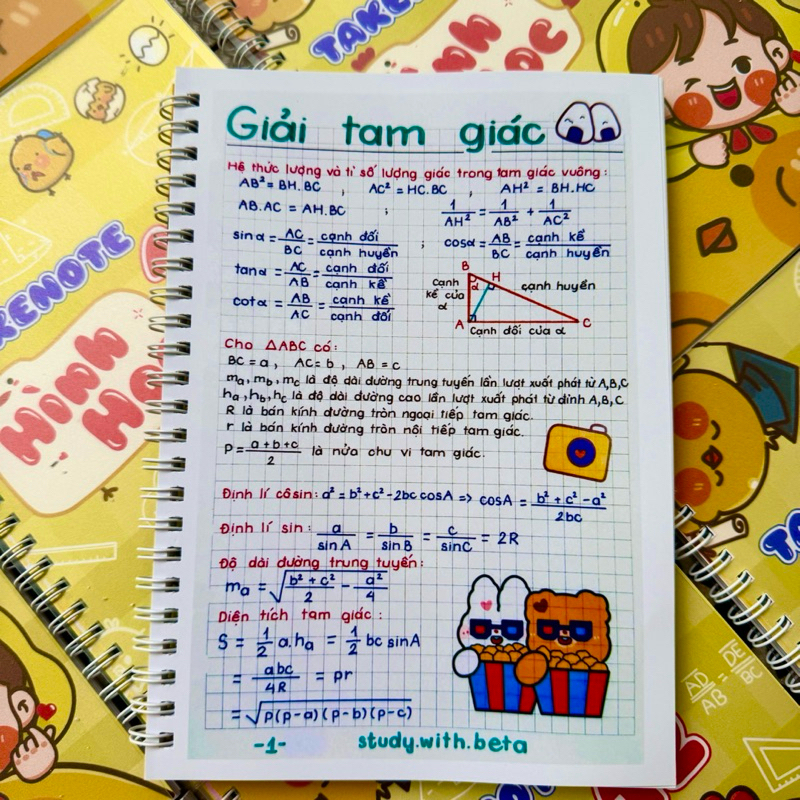 Giải tam giác
Hệ thức lượng và tỉ số lượng giác trong tam giác vuông:
AB² = BH.BC , AC² = HC.BC , AH² = BH.HC
AB.AC = AH.BC ; 1/AH² = 1/AB² + 1/AC²
sinα = AC/BC = cạnh đối/cạnh huyền ; cosα = AB/BC = cạnh kề/cạnh huyền
tanα = AC/AB = cạnh đối/cạnh kề
cotα = AB/AC = cạnh kề/cạnh đối
B
H
α
Cạnh
kề của
α
cạnh huyền
A
C
Cạnh đối của α
Cho ΔABC có:
BC = a , AC = b , AB = c
mₐ, m_b, m_c là độ dài đường trung tuyến lần lượt xuất phát từ A,B,C
hₐ, h_b, h_c là độ dài đường cao lần lượt xuất phát từ đỉnh A,B,C
R là bán kính đường tròn ngoại tiếp tam giác.
r là bán kính đường tròn nội tiếp tam giác.
P = a+b+c/2 là nửa chu vi tam giác.
Định lí côsin: a² = b²+c²-2bc cosA => cosA = b²+c²-a²/2bc
Định lí sin: a/sinA = b/sinB = c/sinC = 2R
Độ dài đường trung tuyến:
mₐ = √(b²+c²/2 - a²/4)
Diện tích tam giác:
S = 1/2 a.hₐ = 1/2 bc sinA
= abc/4R = pr
= √p(p-a)(p-b)(p-c)
-1-
study.with.beta
TAKENOTE
HÌNH
HỌC
AD/AB = DE/BC